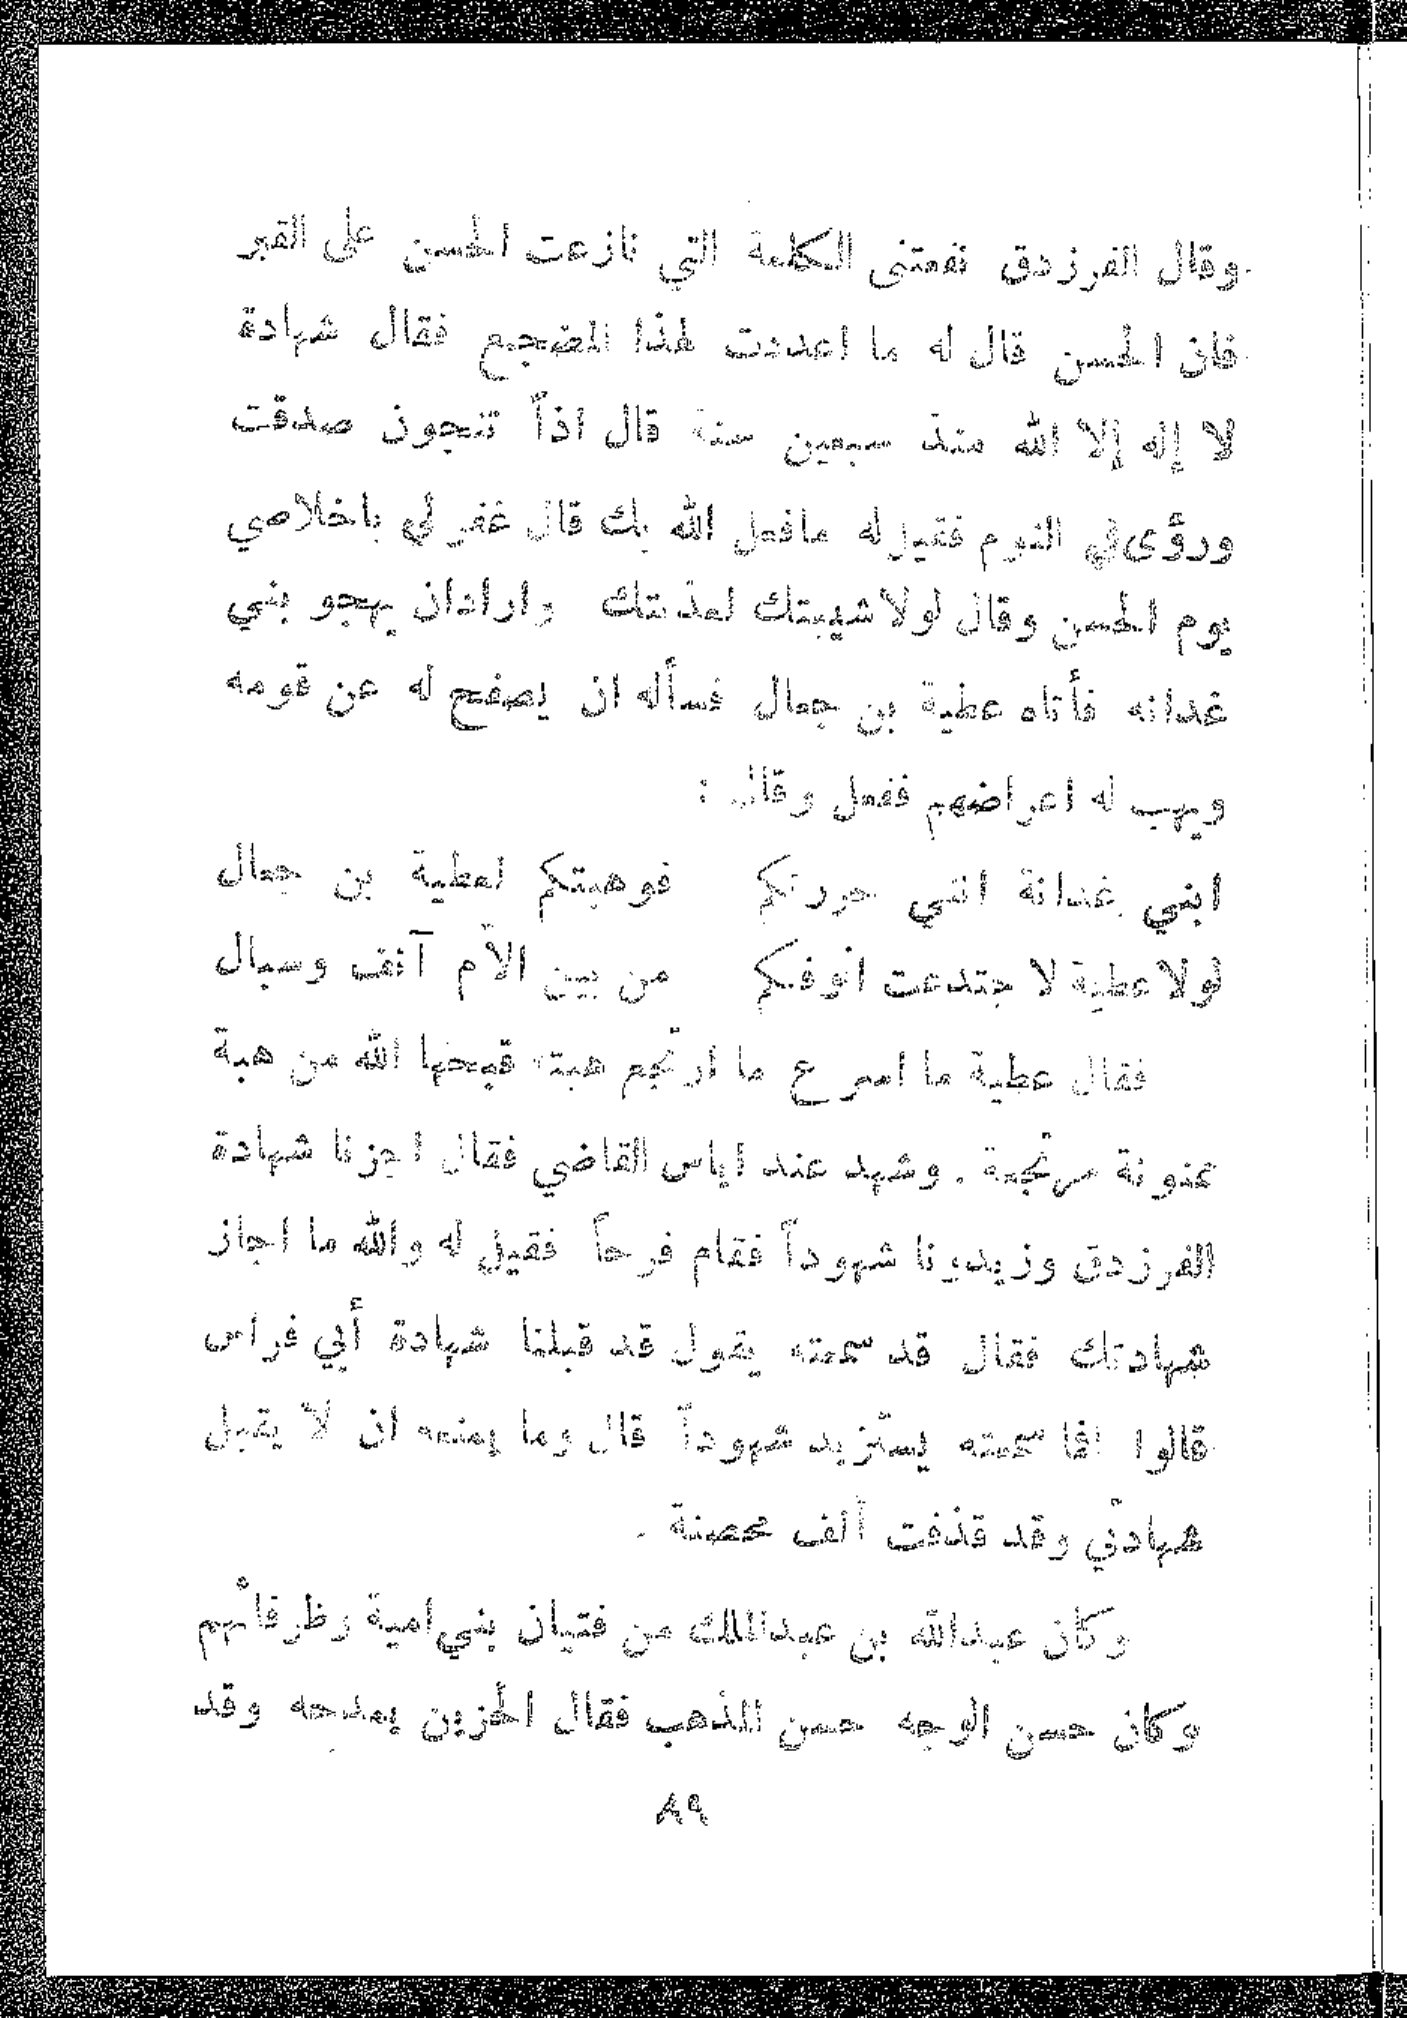 وقال الفرزدق نفعتنى الكلمة التي نازعت الحسن على القبر
فان الحسن قال له ما اعددت لهذا المضجع فقال شهادة
لا إله إلا الله منذ سبعين سنة قال اذاً تنجون صدقت
ورؤى في النوم فقيل له مافعل الله بك قال غفر لي باخلاصي
يوم الحسن وقال لولا شيبتك لعذبتك وارادان يهجو بني
غدانه فأتاه عطية بن جعال فسأله ان يصفح له عن قومه
ويهب له اعراضهم ففعل وقال :
ابني غدانة انني حررتكم فوهبتكم لعطية بن جعال
لولا عطية لا جتدعت انوفكم من بين الأم آنف وسبال
فقال عطية ما اسرع ما ارتجع هبته قبحها الله من هبة
ممنونة مرتجعة . وشهد عند اياس القاضي فقال اجزنا شهادة
الفرزدق وزيدونا شهوداً فقام فرحاً فقيل له والله ما اجاز
شهادتك فقال قد سمعته يقول قد قبلنا شهادة أبي فراس
قالوا افما سمعته يستزيد شهوداً قال وما يمنعه ان لا يقبل
شهادتي وقد قذفت ألف محصنة .
وكان عبدالله بن عبدالملك من فتيان بني امية وظرفائهم
وكان حسن الوجه حسن المذهب فقال الحزين يمدحه وقد
٨٩